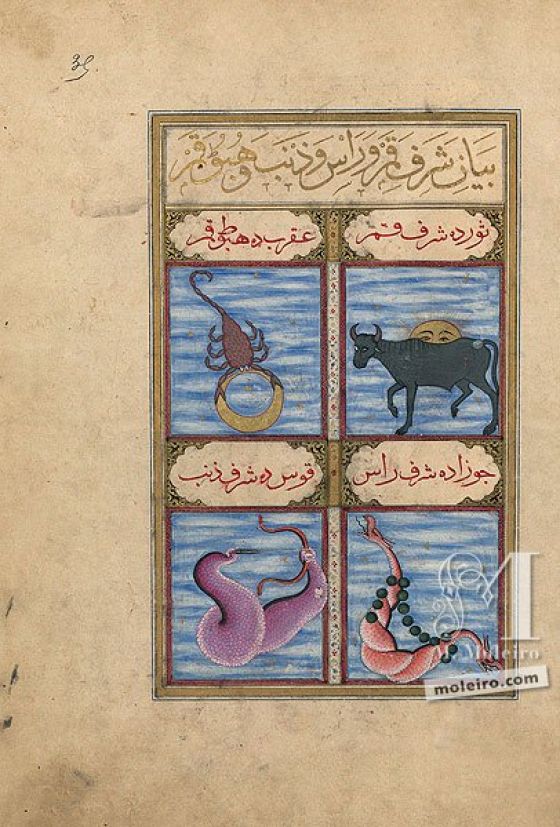 35
بيان شرف قمر و راس و ذنب و هبوط قمر
ثورده شرف قمر
عقربده هبوط قمر
جوزاده شرف راس
قوسده شرف ذنب
M
M. Moleiro
moleiro.com